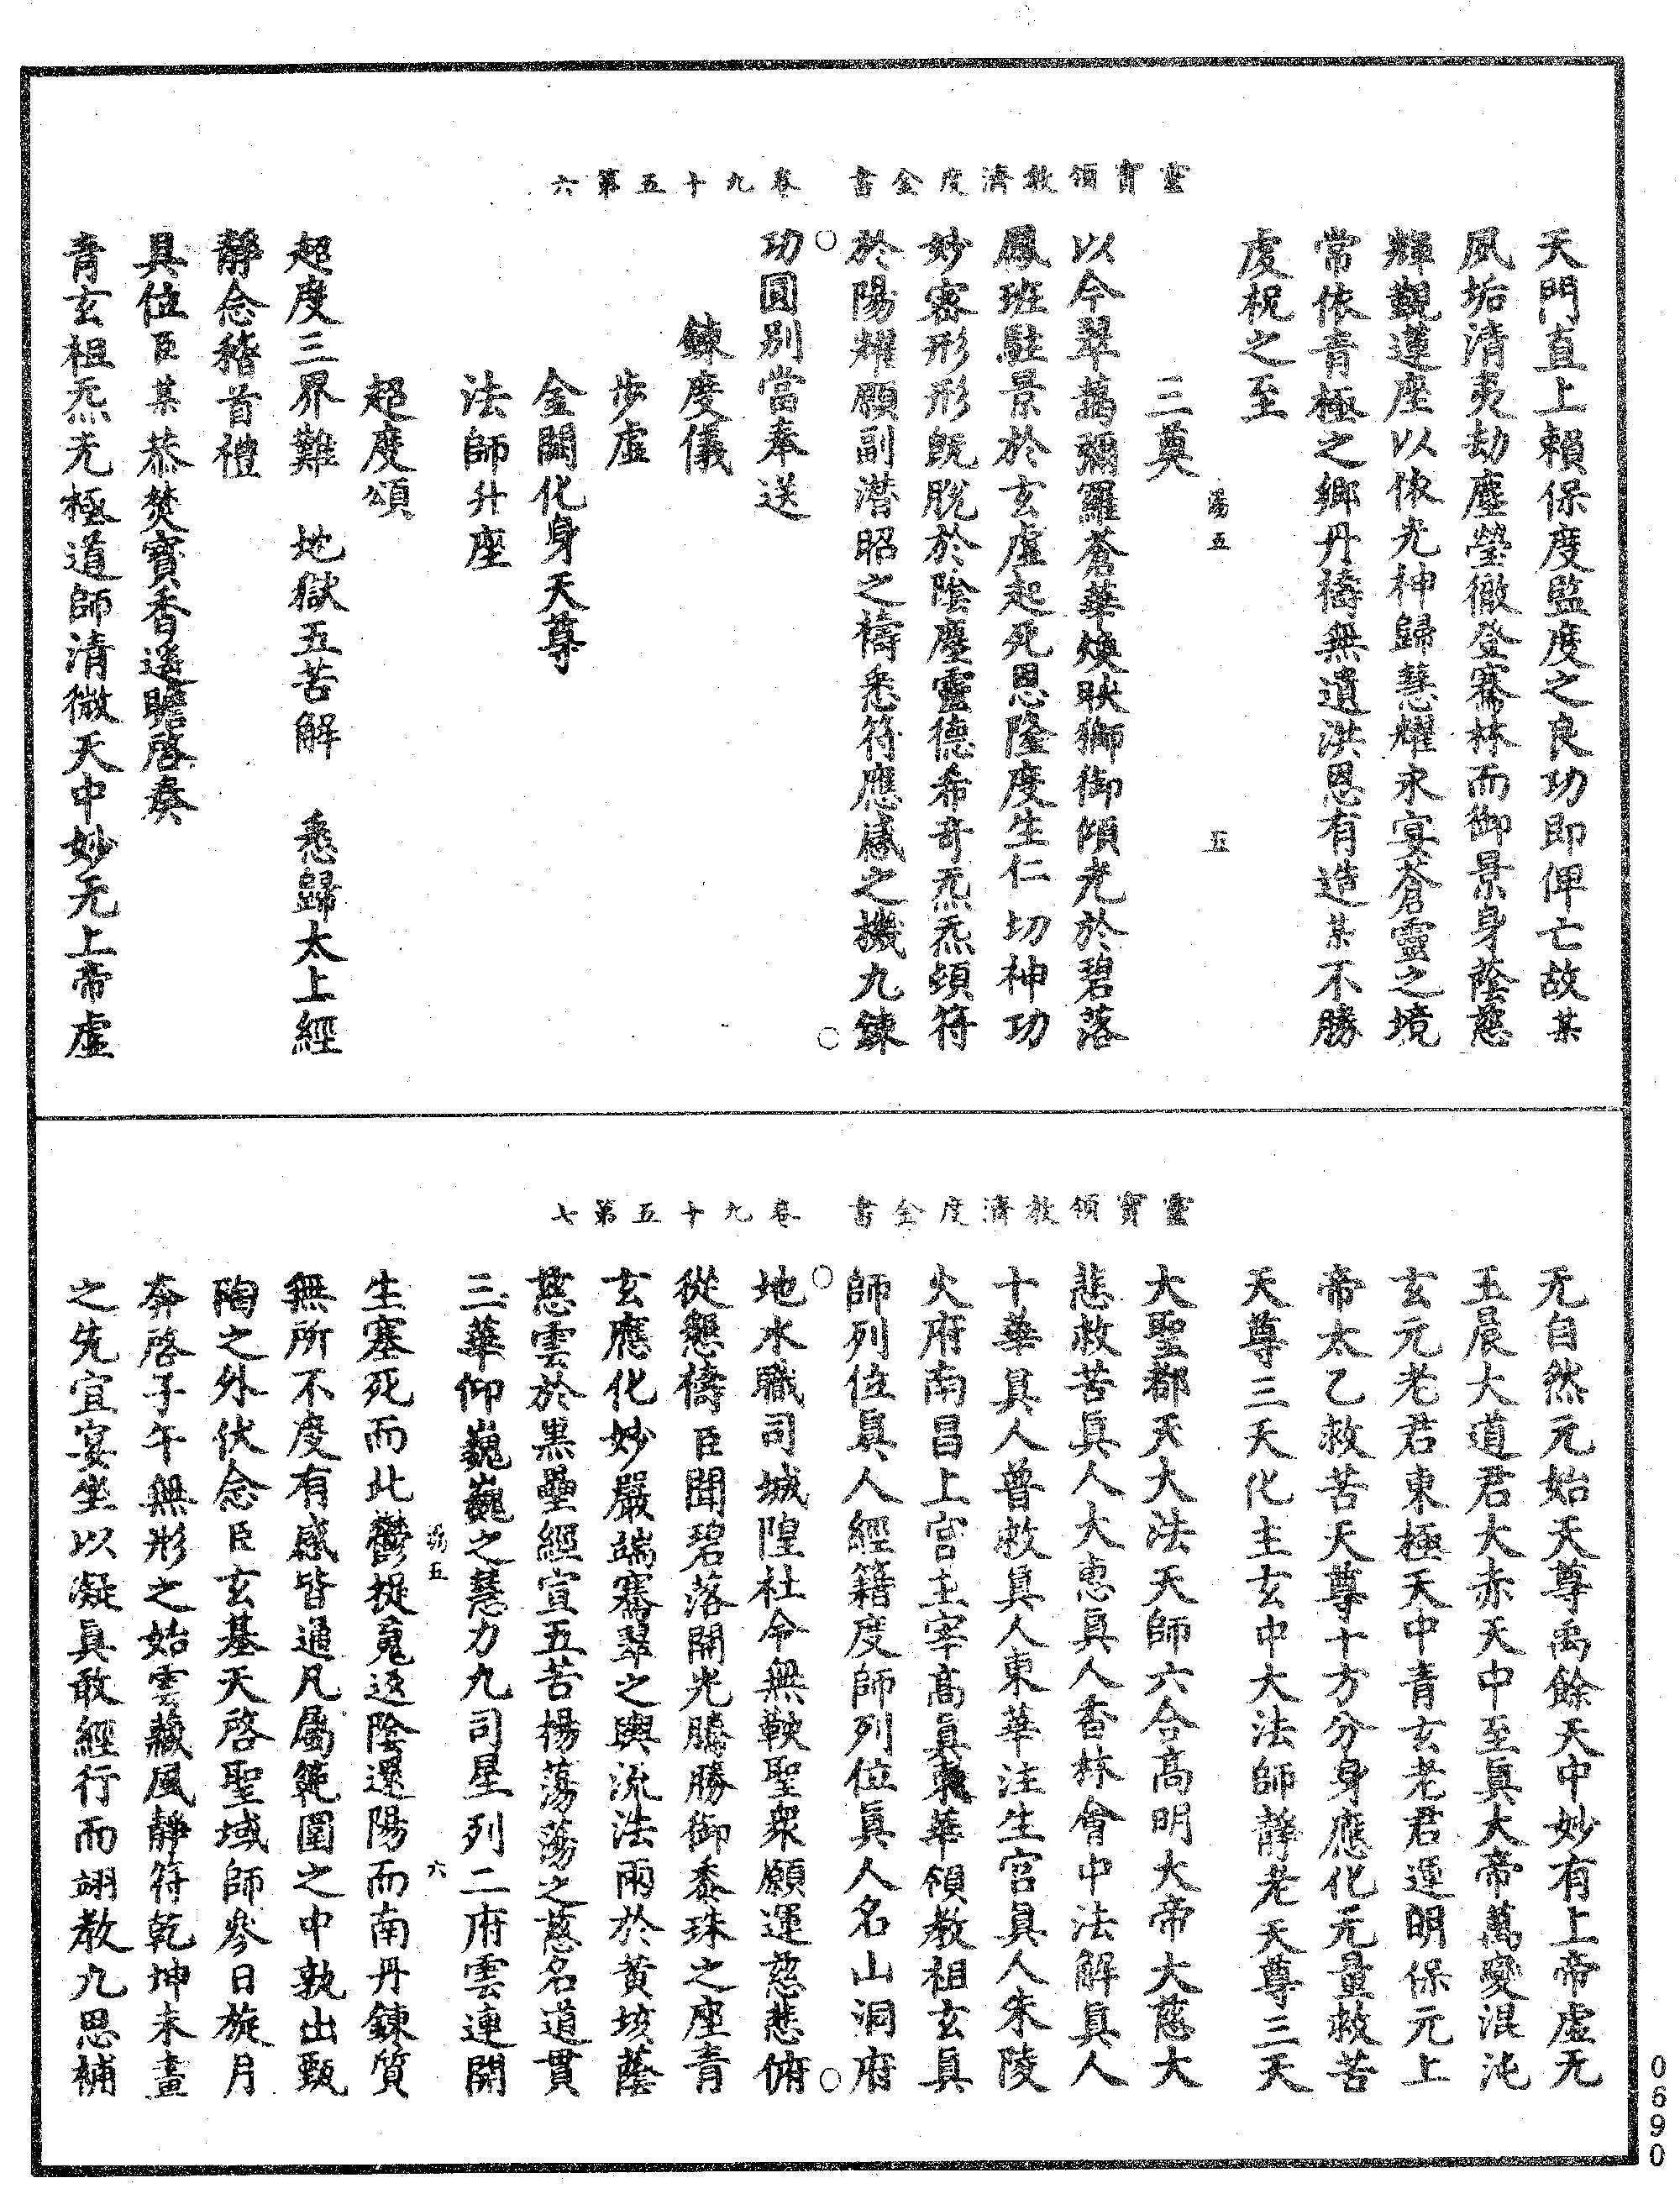 靈寶領教濟度金書　卷九十五第六
天門直上賴保度監度之良功即俾亡故某
夙垢清夷劫塵瑩徹登騫林而御景身蔭慈
輝觀蓮座以依光神歸慧耀永宴蒼靈之境
常依青極之鄉丹禱無遺洪恩有造某不勝
虔祝之至
蕩五　五
三奠
以今翠藹彌羅蒼華煥映獅御傾光於碧落
鳳班駐景於玄虛起死恩隆度生仁切神功
妙審形形旣脫於陰塵靈德希奇炁炁頒符
於陽耀願副潜昭之禱悉符應感之機九鍊
功圓別當奉送
鍊度儀
步虛
金闕化身天尊
法師升座
超度頌
超度三界難　地獄五苦解　悉歸太上經
靜念稽首禮
具位臣某恭焚寶香遙瞻啓奏
青玄祖炁无極道師清微天中妙无上帝虛
靈寶領教濟度金書　卷九十五第七
无自然元始天尊禹餘天中妙有上帝虛无
玉晨大道君大赤天中至眞大帝萬變混沌
玄元老君東極天中青玄老君運明保元上
帝太乙救苦天尊十方分身應化无量救苦
天尊三天化主玄中大法師靜老天尊三天
大聖都天大法天師六合高明大帝大慈大
悲救苦眞人大惠眞人香林會中法解眞人
十華眞人普救眞人東華注生官眞人朱陵
火府南昌上宮主宰高眞東華領教祖玄眞
師列位眞人經籍度師列位眞人名山洞府
地水職司城隍社令無鞅聖衆願運慈悲俯
從懇禱臣聞碧落開光騰勝御黍珠之座青
玄應化妙嚴端騫翠之輿流法雨於黃垓蔭
慈雲於黒壘經宣五苦楊蕩蕩之慈名道貫
三華仰巍巍之慧力九司星列二府雲連開
蕩五　六
生塞死而此鬱捉𩲸返陰還陽而南丹鍊質
無所不度有感皆通凡屬範圍之中孰出甄
陶之外伏念臣玄基天啓聖域師參日旋月
奔啓子午無形之始雲藏風靜符乾坤未畫
之先宜宴坐以凝眞敢經行而翊教九思補
0690